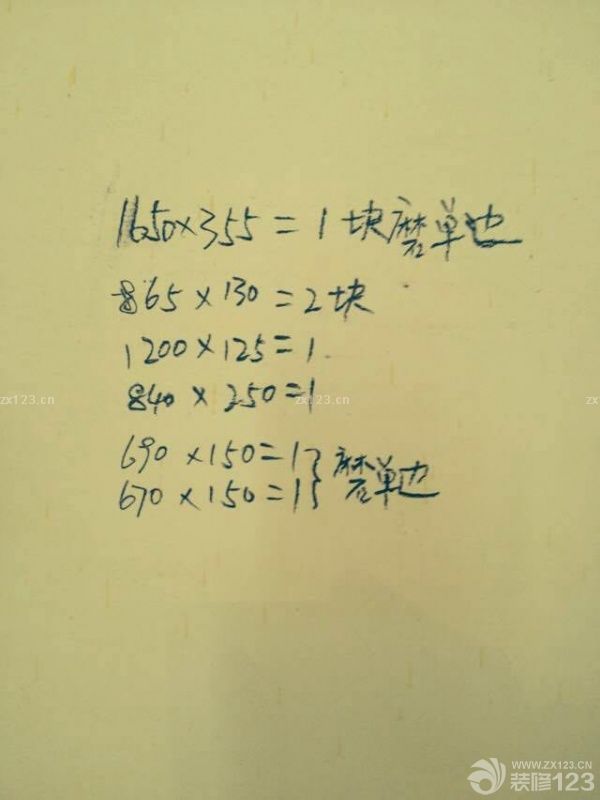 1650×355=1块磨单边
865×130=2块
1200×125=1.
840×250=1
690×150=1
670×150=1 } 磨单边
zx123.cn
zx123.cn
zx123.cn
WWW.ZX123.CN
装修123